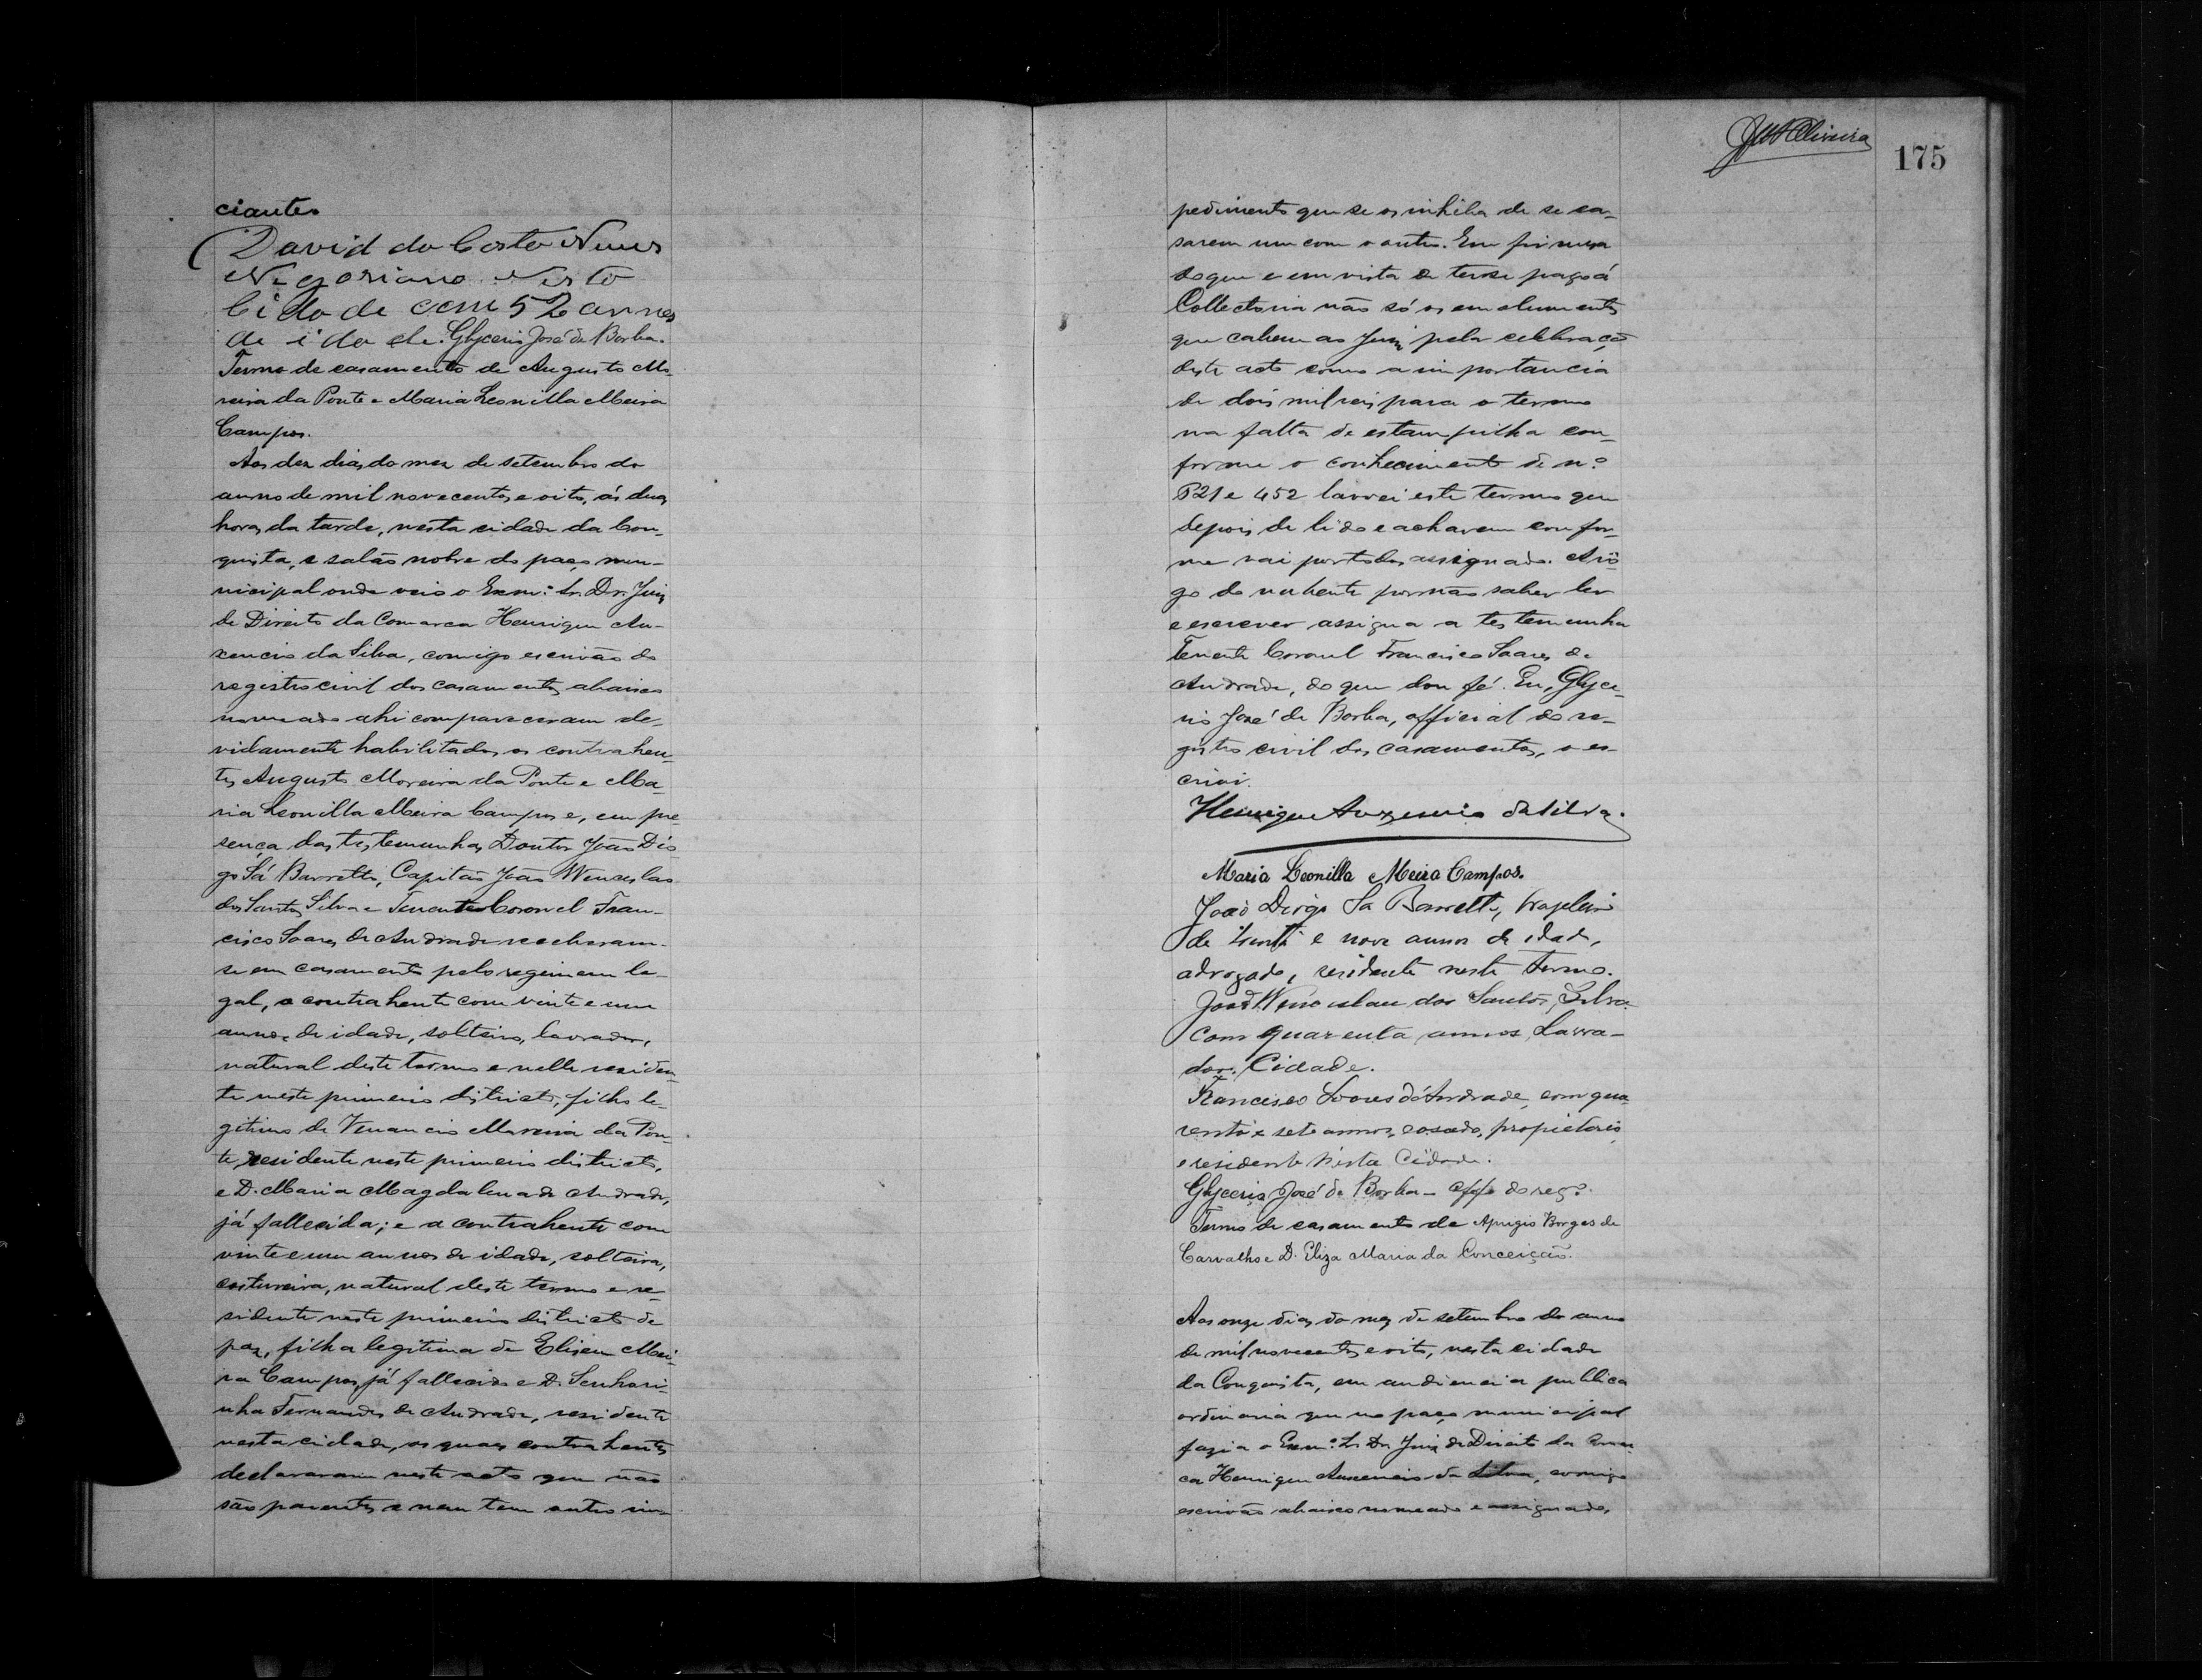 ciante.
David da Costa Nunes
Negoriano Nesto
Cidade com 52 annos
de idade. Glycerio José de Borba.
Termo de casamento de Augusto Mo-
reira da Ponte e Maria Leonilla Meira
Campos.
Aos dez dias do mez de setembro do
anno de mil novecentos e oito, ás duas
horas da tarde, nesta cidade da Con-
quista, e salão nobre do paço mu-
nicipal onde veio o Exmº. Sr. Dr. Juiz
de Direito da Comarca Henrique Au-
xencio da Silva, comigo escrivão do
registro civil dos casamentos abaixo
nomeado ahi compareceram de-
vidamente habilitados os contrahen-
tes Augusto Moreira da Ponte e Ma-
ria Leonilla Meira Campos e, em pre-
sença das testemunhas Doutor João Dio-
go Sá Barretto, Capitão João Wenceslao
dos Santos Silva e Tenente Coronel Fran-
cisco Soares de Andrade receberam-
se em casamento pelo regimem le-
gal, o contrahente com vinte e um
annos de idade, solteiro, lavrador,
natural deste termo e nelle residen-
te neste primeiro districto, filho le-
gitimo de Venancio Moreira da Pon-
te, residente neste primeiro districto,
e D. Maria Magdalena de Andrade,
já fallecida; e a contrahente com
vinte e um annos de idade, solteira,
costureira, natural deste termo e re-
sidente neste primeiro districto de
paz, filha legitima de Eliseu Mei-
ra Campos, já fallecido e D. Senhori-
nha Fernandes de Andrade, residente
nesta cidade, os quaes contrahentes
declararam neste acto que não
são parentes e nem tem outro im-
JM Oliveira
175
pedimento que se os inhiba de se ca-
sarem um com o outro. Em firmeza
do que e em vista de terse pago á
Collectoria não só os emolumentos
que cabem ao Juiz pela celebração
deste acto como a importancia
de dois mil reis para o termo
na falta de estampilha con-
forme o conhecimento de nº
P21 e 452 lavrei este termo que
depois de lido e acharem confor-
me vai por todos assignado. A ro-
go do nubente por não saber ler
e escrever assigna a testemunha
Tenente Coronel Francisco Soares de
Andrade, do que dou fé. Eu, Glyce-
rio José de Borba, official do re-
gistro civil dos casamentos, o es-
crivi.
Henrique Auxencio da Silva.
Maria Leonilla Meira Campos.
João Diogo Sá Barretto, brazileiro
de trinta e nove annos de idade,
advogado, residente neste termo.
João Wenceslau dos Santos Silva
com quarenta annos Lavra-
dor. Cidade.
Francisco Soares d'Andrade, com qua
renta e sete annos, casado, propietario
e residente n'esta Cidade.
Glycerio José de Borba - offº do regº.
Termo de casamento de Aprigio Borges de
Carvalho e D. Eliza Maria da Conceição.
Aos onze dias do mez de setembro do anno
de mil novecentos e oito, nesta cidade
da Conquista, em audiencia publica
ordinaria que no paço municipal
fazia o Exmº. Sr. Dr. Juiz de Direito da Comar
ca Henrique Auxencio da Silva, comigo
escrivão abaixo nomeado e assignado,